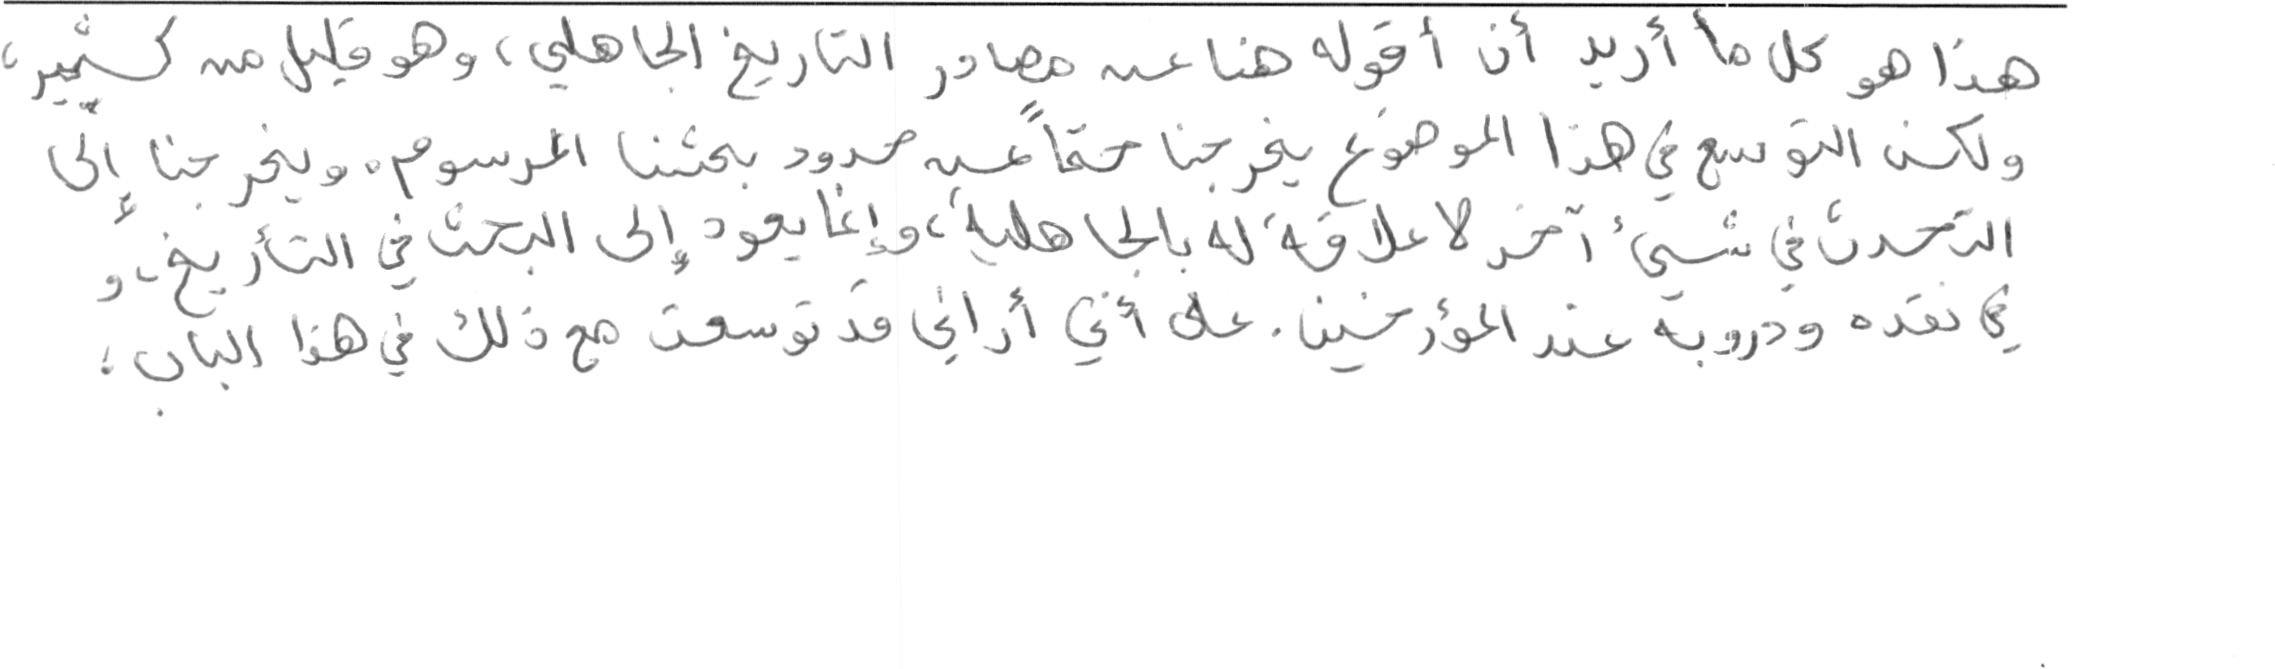 هذا هو كل ما أريد أن أقوله هنا عن مصادر التاريخ الجاهلي، وهو قليل من كثير،
ولكن التوسع في هذا الموضوع يخرجنا حقاً عن حدود بحثنا المرسوم. ويخرجنا إلى
التحدث في شيء آخر لا علاقة له بالجاهلية، وإنما يعود إلى البحث في التأريخ، و
في نقده ودروبه عند المؤرخين. على أني أراني قد توسعت مع ذلك في هذا الباب؛